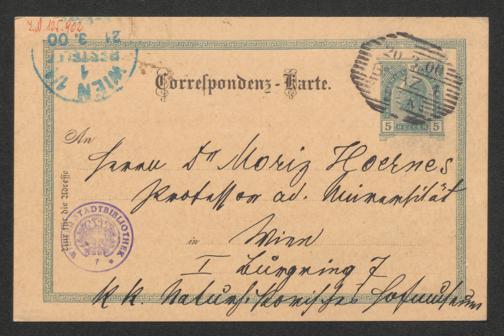 J.N. 125.902
WIEN 1/1
BESTELLT
21 3.00
1
Correspondenz-Karte.
20 3 00
5 HELLER 5
An
Herrn Dr Moriz Hoernes
Professor ad. Universität
in Wien
I Burgring 7
KK. Naturhistorisches Hofmuseum
Nur für die Adresse
STADTBIBLIOTHEK